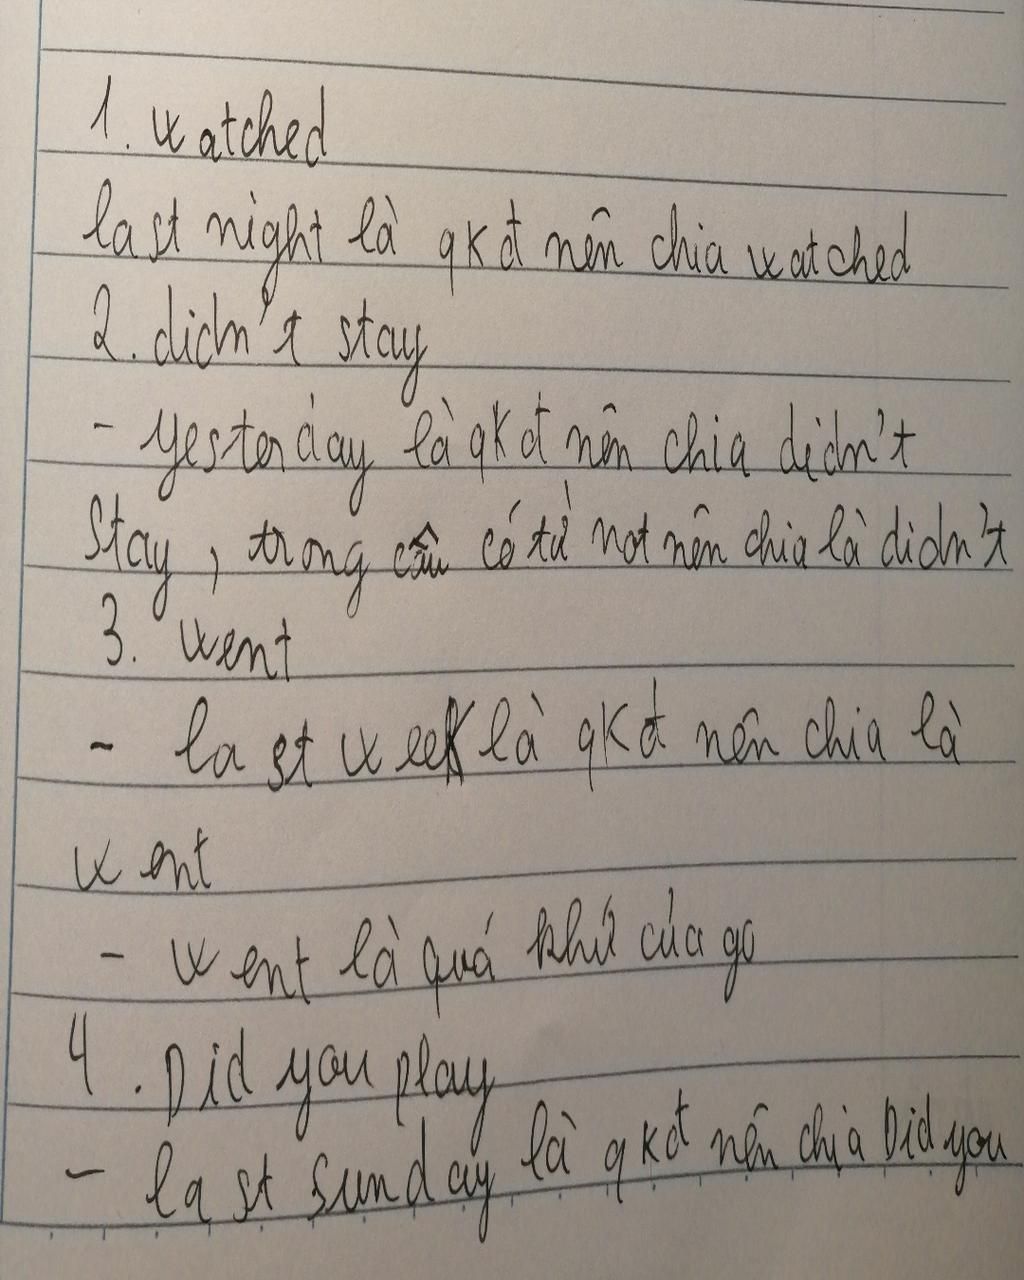 1. watched
last night là qkđ nên chia watched
2. didn't stay
- yesterday là qkđ nên chia didn't
stay, trong câu có từ not nên chia là didn't
3. went
- last week là qkđ nên chia là
went
- went là quá khứ của go
4. Did you play
- last sunday là qkđ nên chia Did you